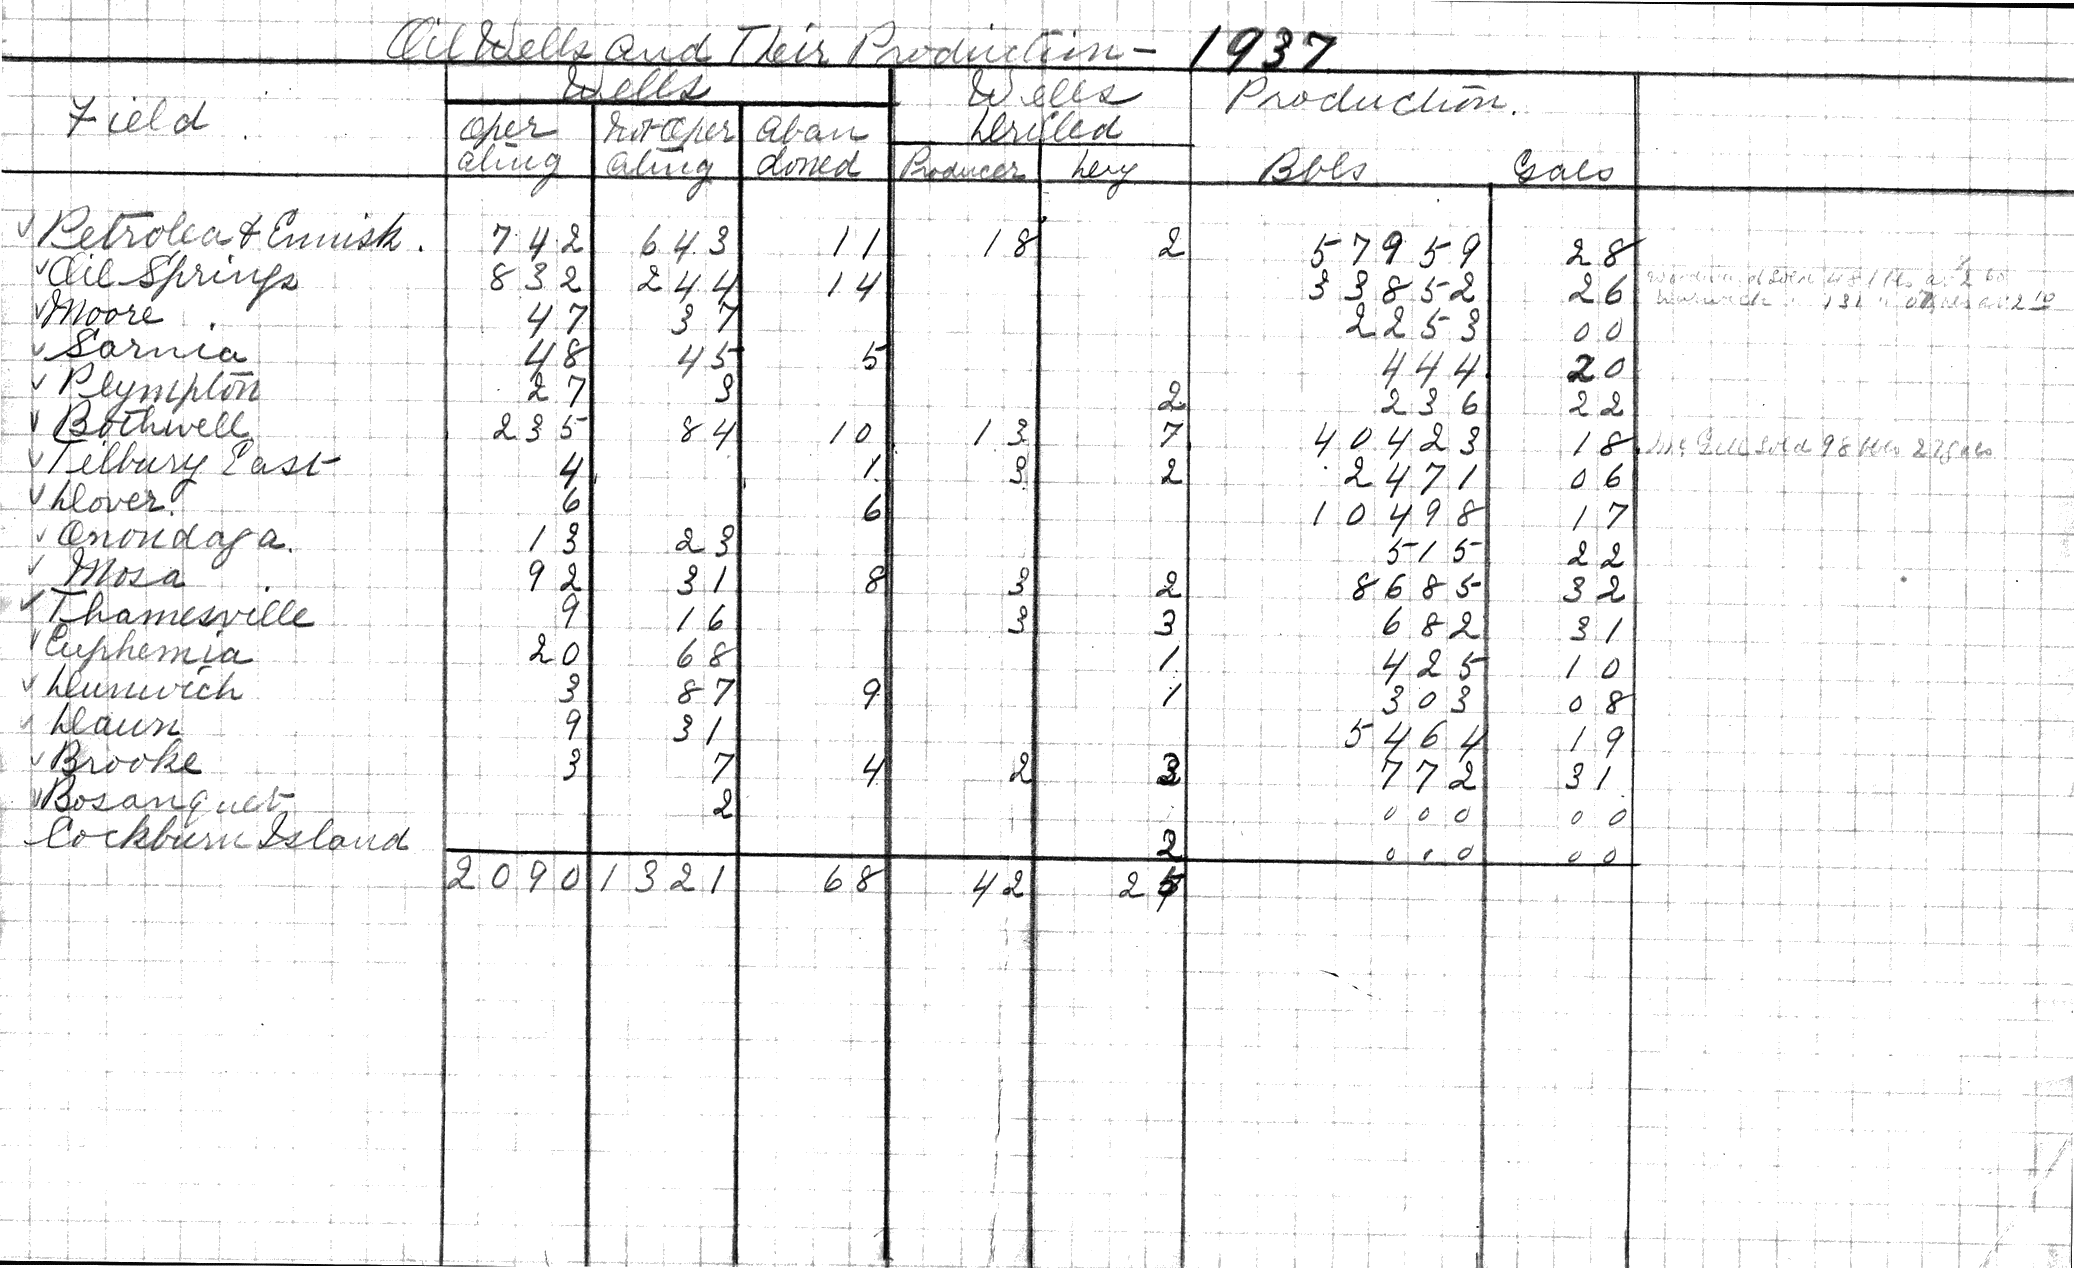 Oil Wells and Their Production - 1937
Field Wells Wells Drilled Production.
Oper ating Not Oper ating Aban doned Producer Dry Bbls Gals
✓ Petrolea & Ennisk. 742 643 11 18 2 57959 28
✓ Oil Springs 832 244 14 33852 26
✓ Moore 47 37 2253 00
✓ Sarnia 48 45 5 444 20
✓ Plympton 27 3 2 236 22
✓ Bothwell 235 84 10 13 7 40423 18 sold 98 bbls 27 gals
✓ Tilbury East 4 1 3 2 2471 06
✓ Dover 6 6 10498 17
✓ Onondaga. 13 23 515 22
✓ Mosa 92 31 8 3 2 8685 32
✓ Thamesville 9 16 3 3 682 31
✓ Euphemia 20 68 1 425 10
✓ Dunwich 3 87 9 1 303 08
✓ Dawn 9 31 5464 19
✓ Brooke 3 7 4 2 3 772 31
✓ Bosanquet 2 000 00
Cockburn Island 2 000 00
2090 1321 68 42 25